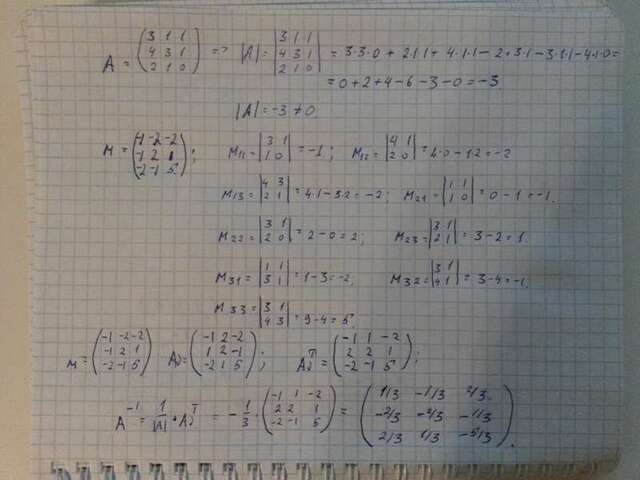 A = (3 1 1; 4 3 1; 2 1 0) => |A| = |3 1 1; 4 3 1; 2 1 0| = 3·3·0 + 2·1·1 + 4·1·1 - 2·3·1 - 3·1·1 - 4·1·0 =
= 0 + 2 + 4 - 6 - 3 - 0 = -3
|A| = -3 ≠ 0
M = (-1 -2 -2; -1 2 1; -2 -1 5); M11 = |3 1; 1 0| = -1; M12 = |4 1; 2 0| = 4·0 - 1·2 = -2
M13 = |4 3; 2 1| = 4·1 - 3·2 = -2; M21 = |1 1; 1 0| = 0 - 1 = -1.
M22 = |3 1; 2 0| = 2 - 0 = 2; M23 = |3 1; 2 1| = 3 - 2 = 1.
M31 = |1 1; 3 1| = 1 - 3 = -2; M32 = |3 1; 4 1| = 3 - 4 = -1.
M33 = |3 1; 4 3| = 9 - 4 = 5;
M = (-1 -2 -2; -1 2 1; -2 -1 5) A = (-1 2 -2; 1 2 -1; -2 1 5); A^T = (-1 1 -2; 2 2 1; -2 -1 5);
A^-1 = 1/|A| · A^T = -1/3 · (-1 1 -2; 2 2 1; -2 -1 5) = (1/3 -1/3 2/3; -2/3 -2/3 -1/3; 2/3 1/3 -5/3).